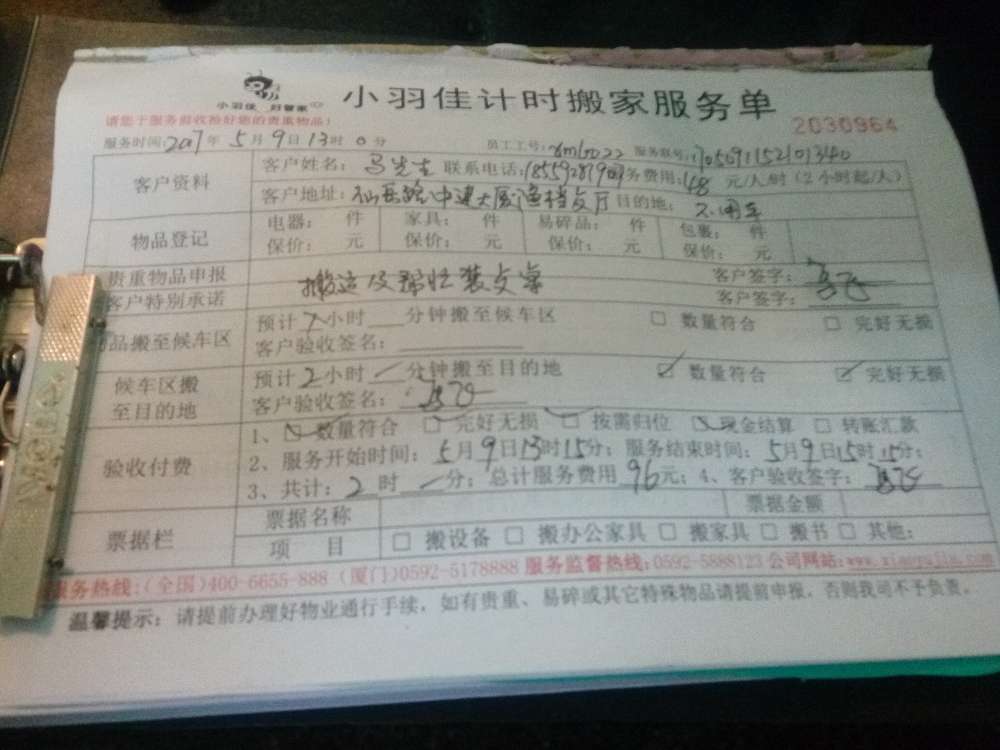 小羽佳 好管家
小羽佳计时搬家服务单
请您于服务前收拾好您的贵重物品！
2030964
服务时间：2017年5月9日13时0分 员工工号： 服务联号：
客户资料
客户姓名：马先生 联系电话： 服务费用：48元/人/时（2小时起/人）
客户地址：仙岳路中建大厦 目的地：不用车
物品登记
电器： 件 家具： 件 易碎品： 件 包裹： 件
保价： 元 保价： 元 保价： 元 保价： 元
贵重物品申报 客户签字：
客户特别承诺 搬运及 客户签字：
物品搬至候车区
预计 小时 分钟搬至候车区 □ 数量符合 □ 完好无损
客户验收签名：
候车区搬至目的地
预计2小时 分钟搬至目的地 ☑ 数量符合 ☑ 完好无损
客户验收签名：
验收付费
1、☑ 数量符合 ☑ 完好无损 ☑ 按需归位 ☑ 现金结算 □ 转账汇款
2、服务开始时间：5月9日13时15分；服务结束时间：5月9日15时15分；
3、共计：2时 分；总计服务费用96元；4、客户验收签字：
票据栏
票据名称 票据金额
项 目 □ 搬设备 □ 搬办公家具 □ 搬家具 □ 搬书 □ 其他：
服务热线：(全国)400-6655-888 (厦门)0592-5178888 服务监督热线：0592-5888123 公司网站：www.xiaoyujia.com
温馨提示：请提前办理好物业通行手续，如有贵重、易碎或其它特殊物品请提前申报，否则我司不予负责。